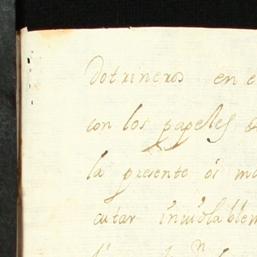 Dotrineros en
con los papeles
la presente oi
cutar inviolablem